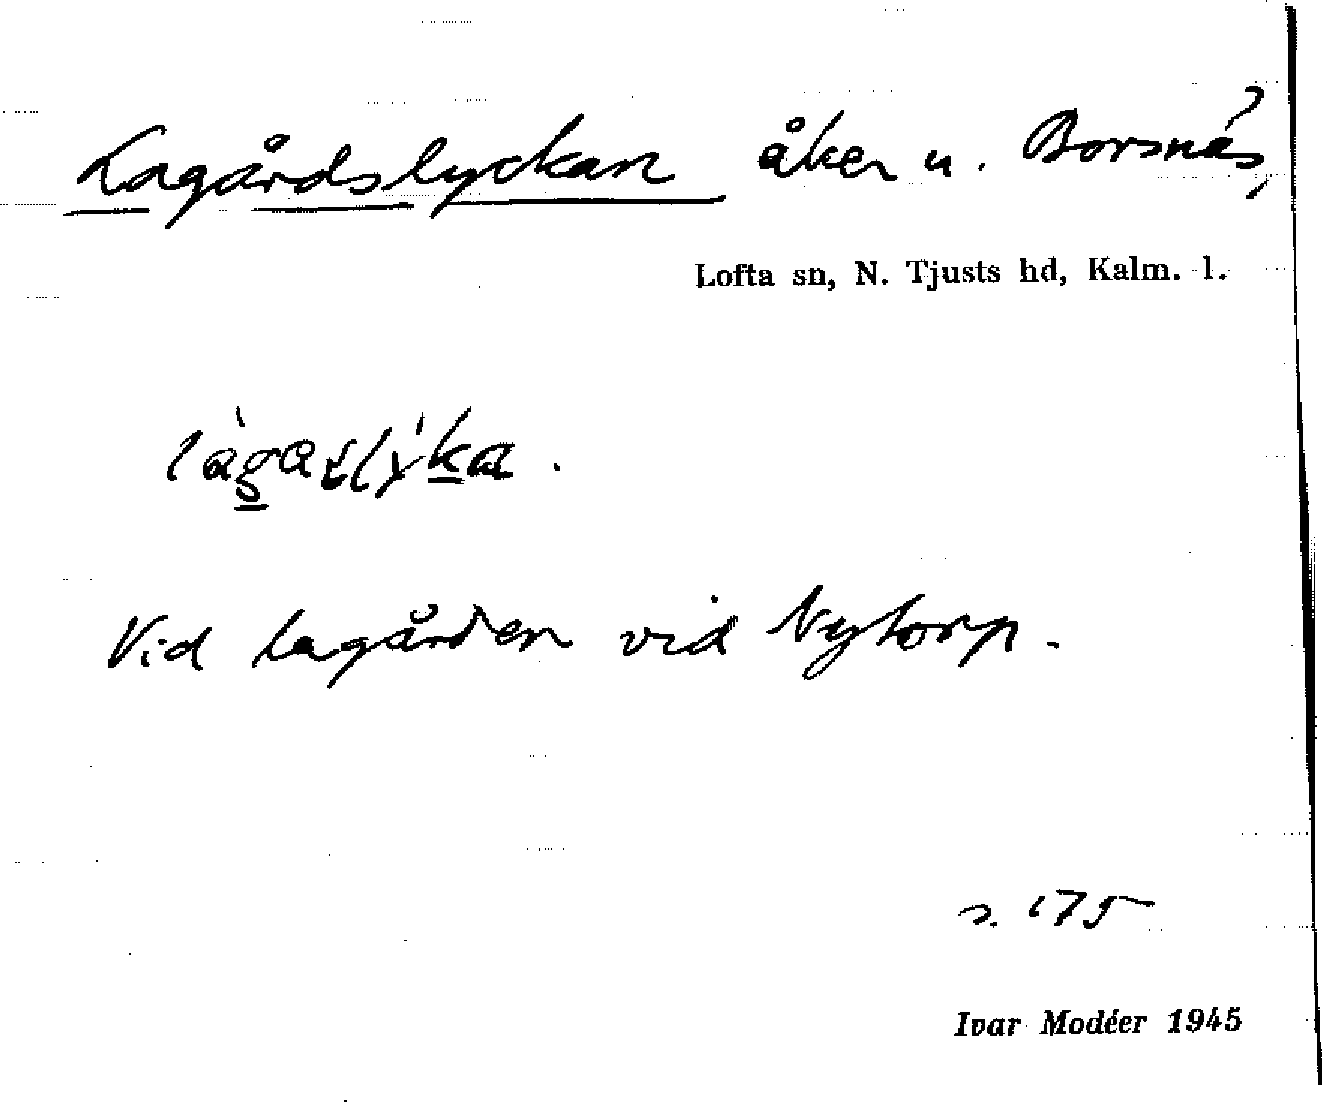 Lagårdslyckan åker u. Borsnäs,
Lofta sn, N. Tjusts hd, Kalm. l.
Vid lagården vid Nytorp.
s. 175
Ivar Modéer 1945